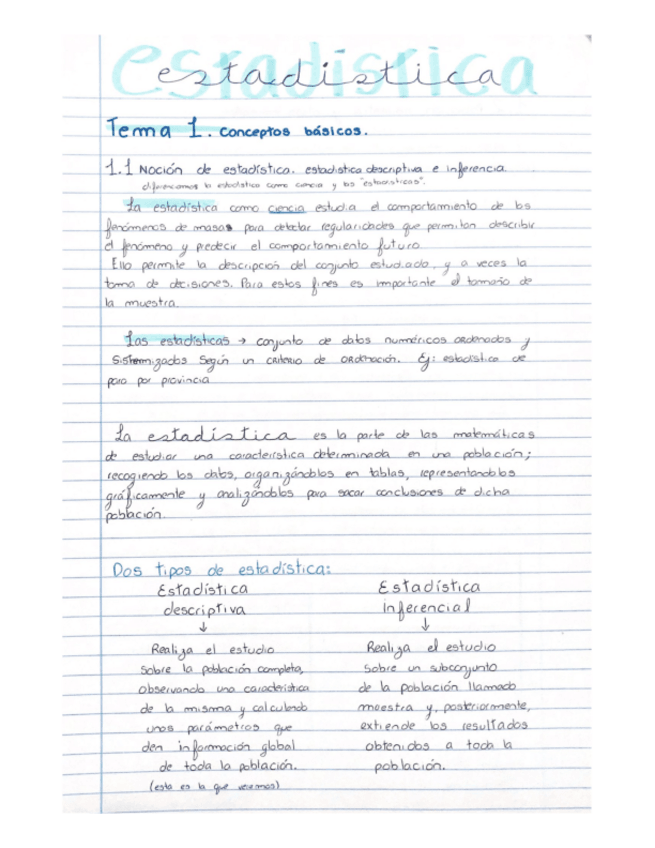 estadística
Tema 1. conceptos básicos.
1.1 Noción de estadística. estadística descriptiva e inferencia.
diferenciamos la estadística como ciencia y las "estadísticas".
La estadística como ciencia estudia el comportamiento de los
fenómenos de masas para detectar regularidades que permitan describir
el fenómeno y predecir el comportamiento futuro.
Ello permite la descripción del conjunto estudiado, y a veces la
toma de decisiones. Para estos fines es importante el tamaño de
la muestra.
Las estadísticas → conjunto de datos numéricos ordenados y
sistemizados según un criterio de ordenación. Ej: estadística de
paro por provincia
La estadística es la parte de las matemáticas
de estudiar una característica determinada en una población;
recogiendo los datos, organizándolos en tablas, representándolos
gráficamente y analizándolos para sacar conclusiones de dicha
población.
Dos tipos de estadística:
Estadística
descriptiva
↓
Realiza el estudio
sobre la población completa,
observando una característica
de la misma y calculando
unos parámetros que
den información global
de toda la población.
(esta es la que veremos)
Estadística
inferencial
↓
Realiza el estudio
sobre un subconjunto
de la población llamado
muestra y, posteriormente,
extiende los resultados
obtenidos a toda la
población.